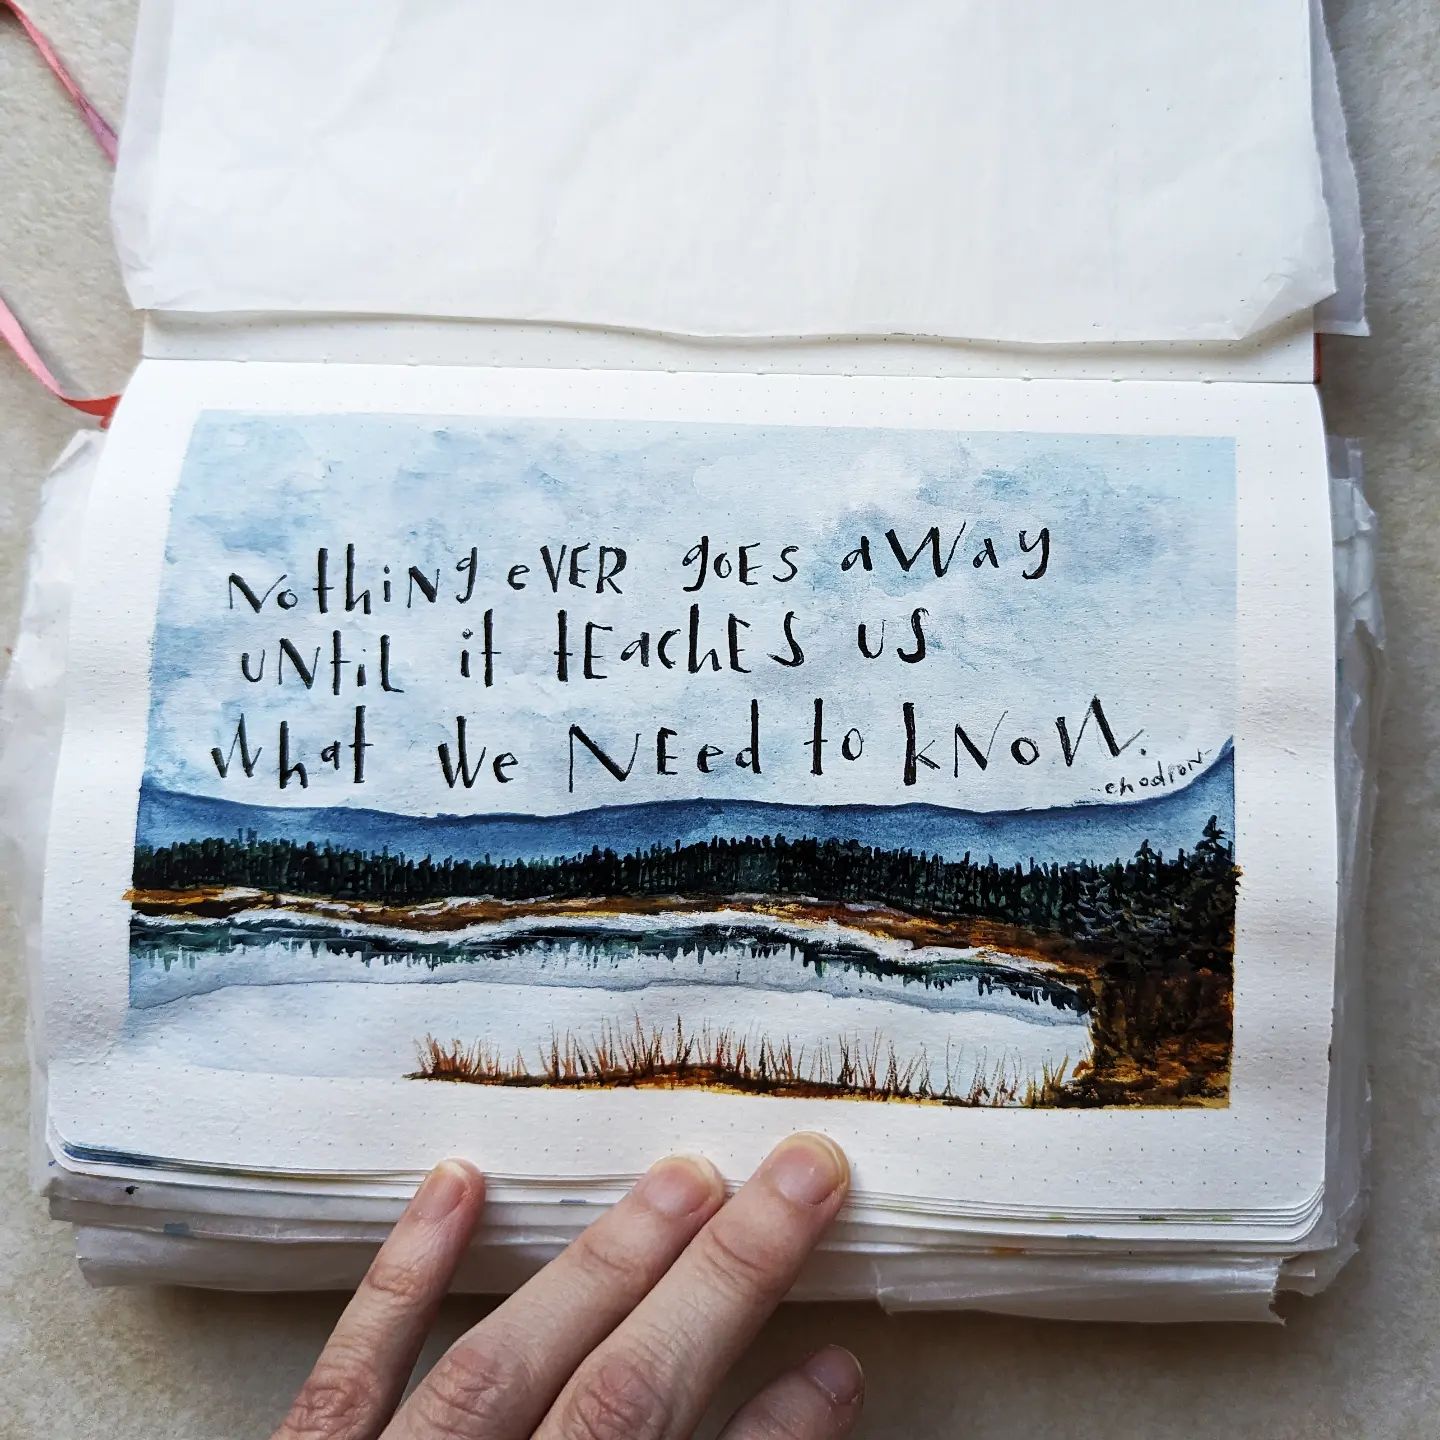 NothiNg eVER goEs aWay
UNtiL it tEachES US
What We NEed to kNoW.
chodron